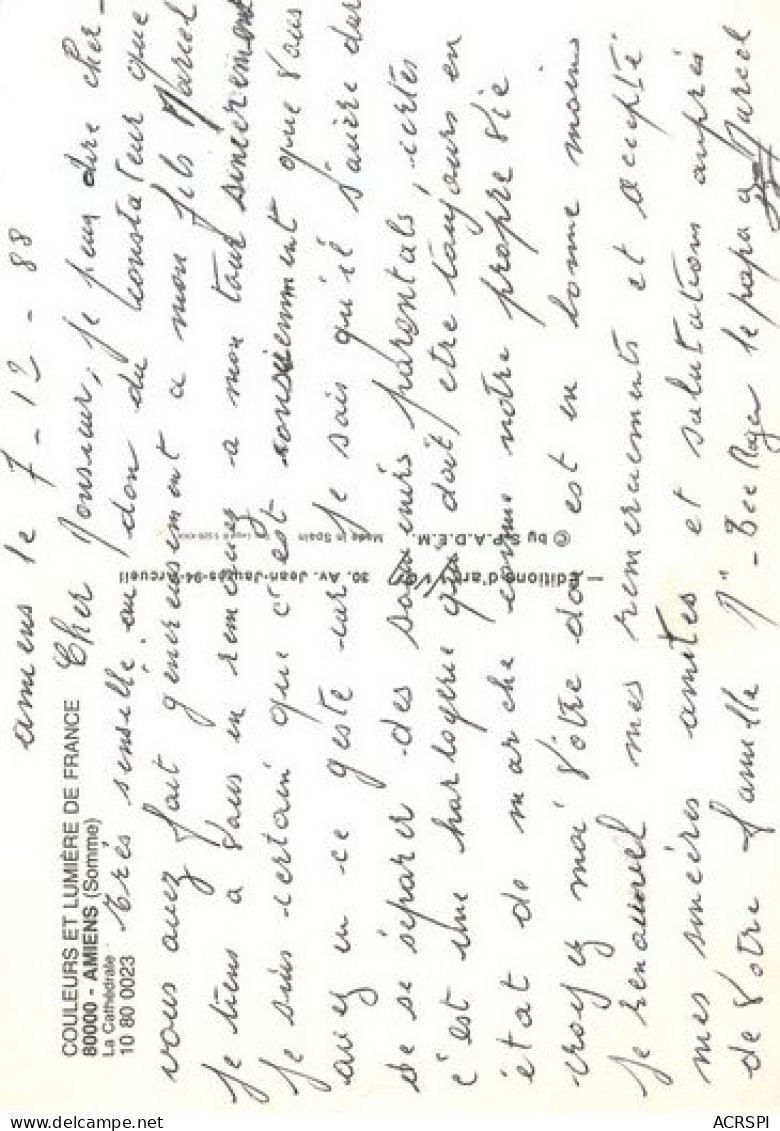 amiens le 7-12-88
COULEURS ET LUMIÈRE DE FRANCE
80000 - AMIENS (Somme)
La Cathédrale
10 80 0023
Cher Monsieur, je peux dire cher-
très sensible au don du constateur que
vous avez fait genereusement a mon fils Marcel
je tiens a vous en remerciez a mon tour sincerement
je suis certain que c'est consiemment que vous
aviez en ce geste car je sais qu'il s'avère dur
de se séparer des souvenirs parentals, certes
c'est une harlogerie qui doit etre toujours en
état de marche comme notre propre vie
croyez moi votre don est en bonne mains
je renouvel mes remerciments et accepté
mes sincères amités et salutations auprès
de votre famille Mr - Bee Roger le papa a Marcel
— Editions d'art
30, Av. Jean-Jaurès-94-Arcueil
© by S.P.A.D.E.M.
Made in Spain
ACRSPI